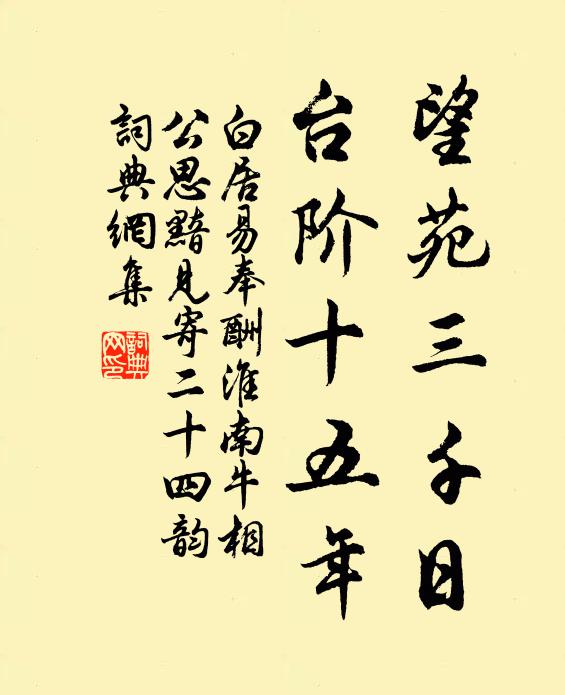 望苑三千日
台阶十五年
白居易奉酬淮南牛相
公思黯見寄二十四韵
詞典網集
詞典
网印